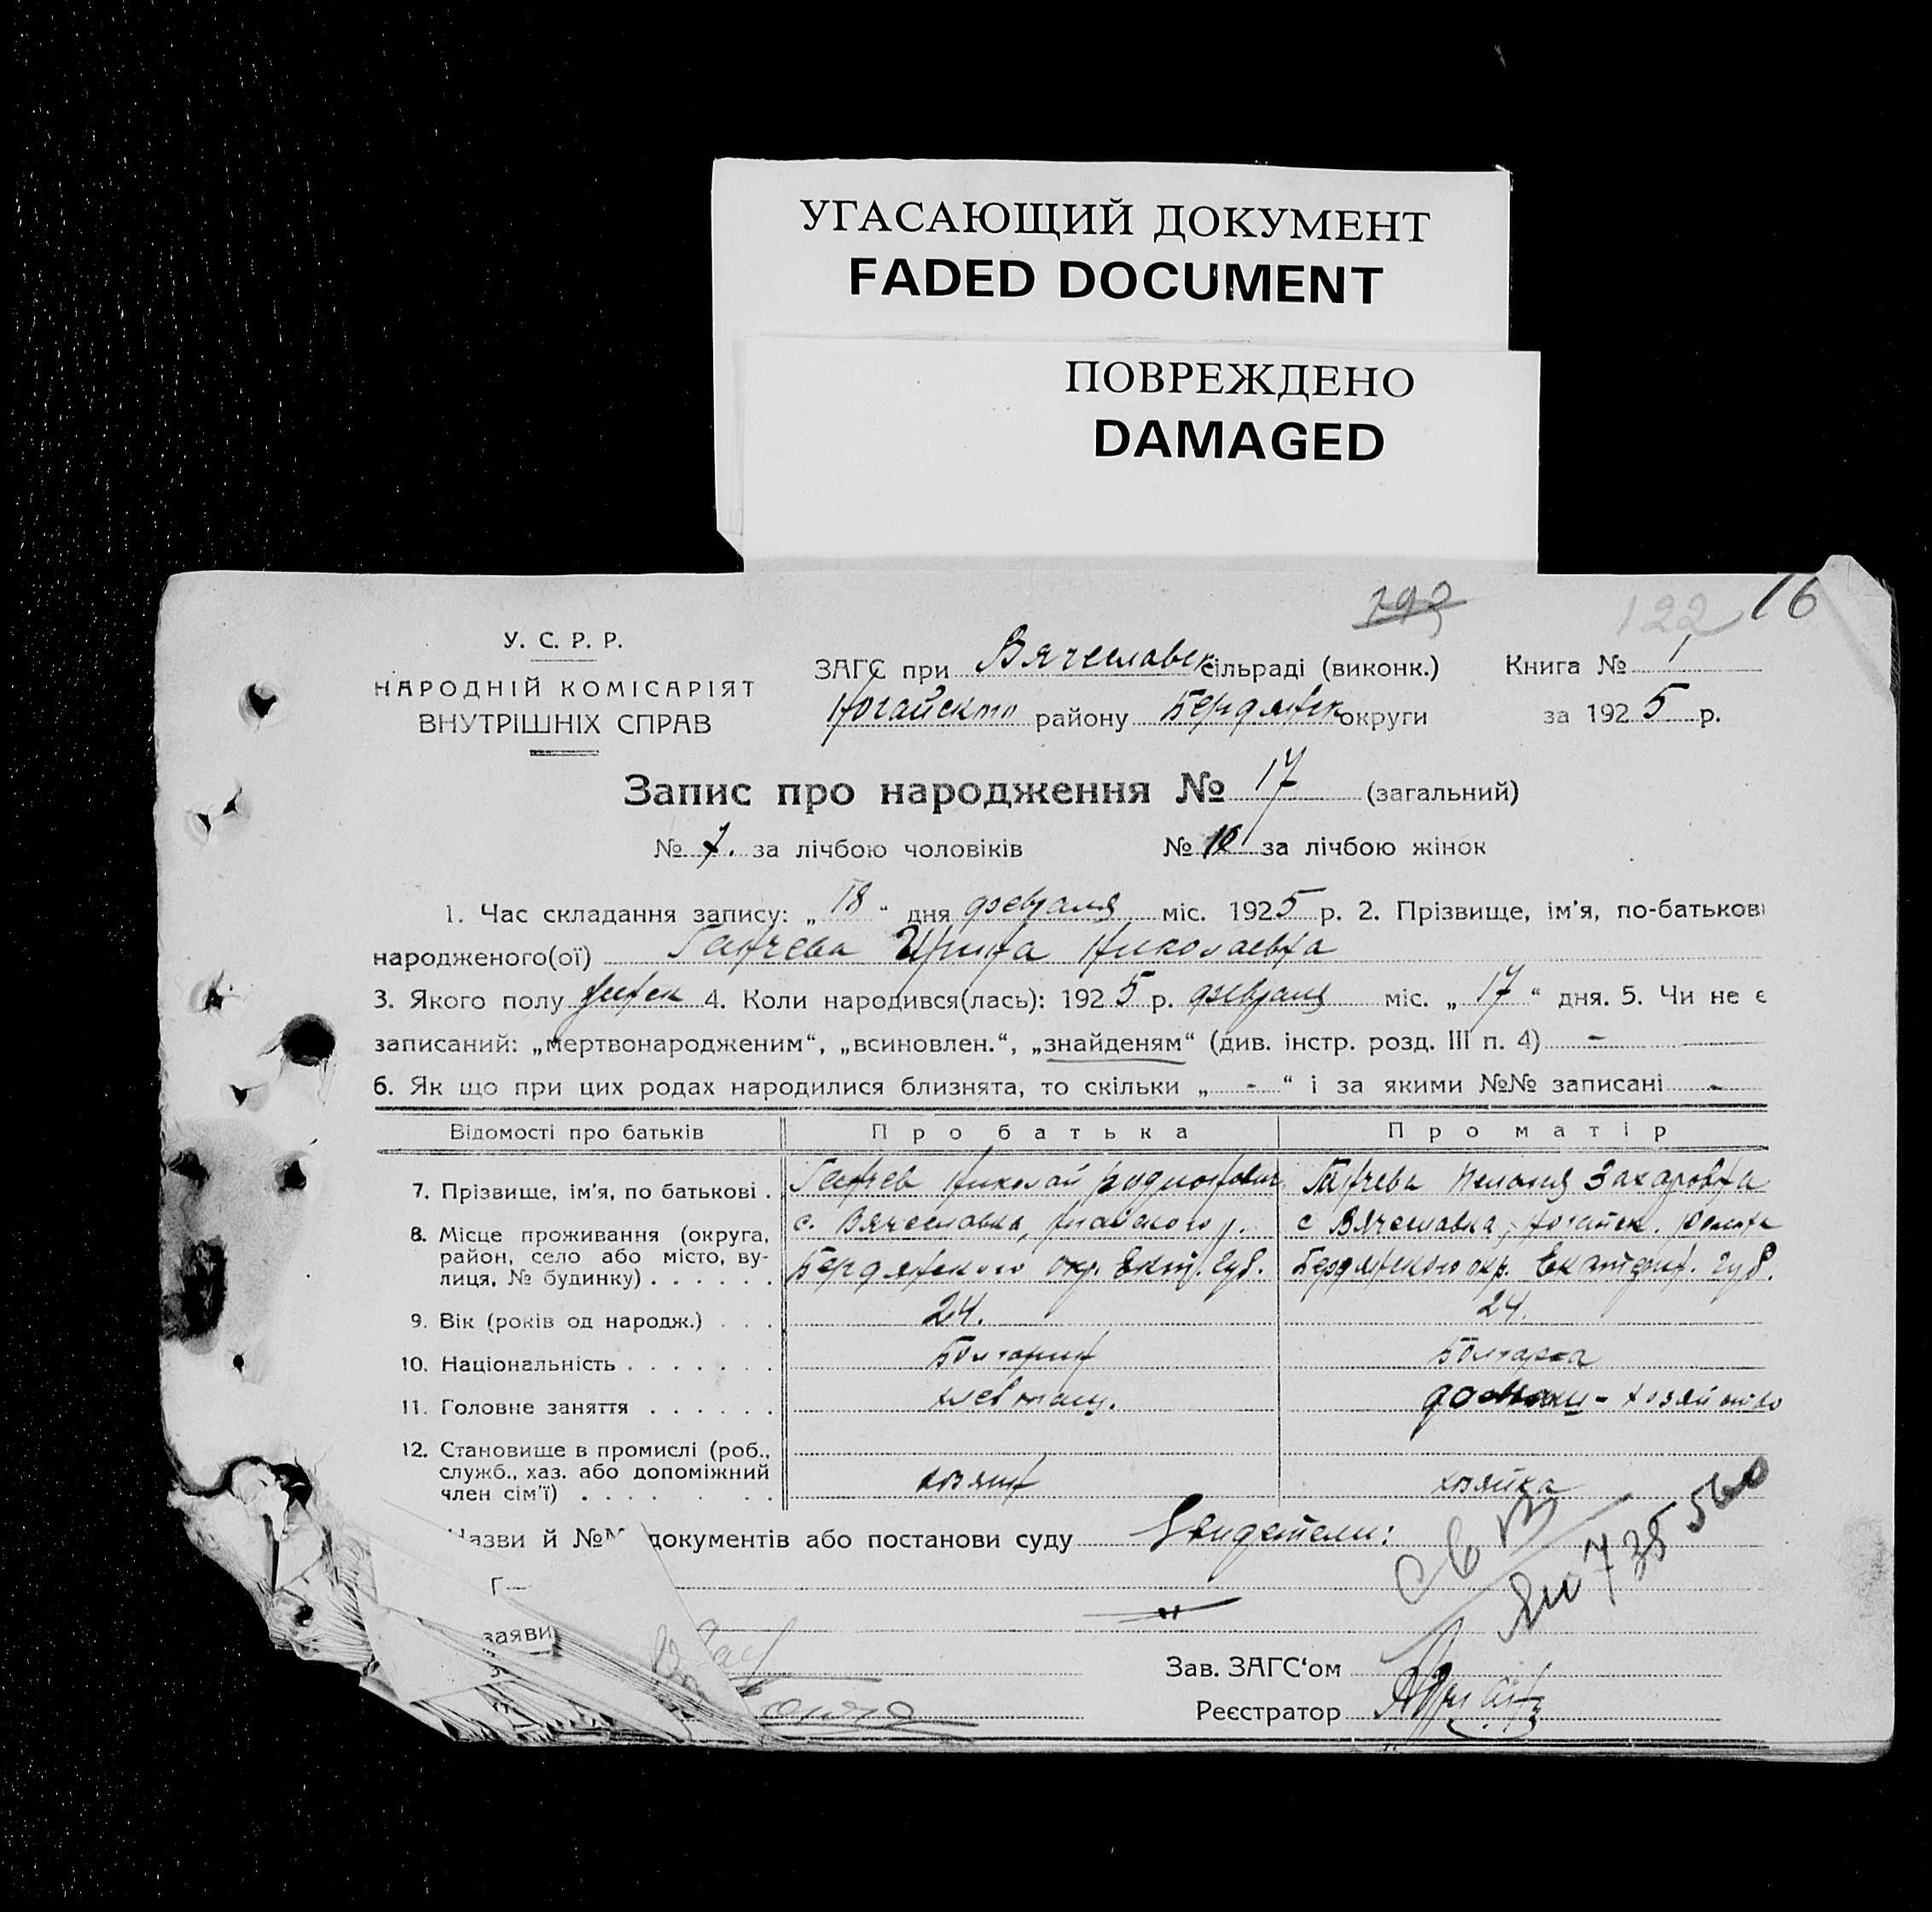 УГАСАЮЩИЙ ДОКУМЕНТ
FADED DOCUMENT
ПОВРЕЖДЕНО
DAMAGED
122 16
У. С. Р. Р.
НАРОДНІЙ КОМІСАРІЯТ
ВНУТРІШНІХ СПРАВ
ЗАГС при Вячеславск сільраді (виконк.) Книга № 1
Ногайского району Бердянск округи за 1925 р.
Запис про народження № 17 (загальний)
№ 7. за лічбою чоловіків № 10 за лічбою жінок
1. Час складання запису: „18“ дня февраля міс. 1925 р. 2. Прізвище, ім'я, по-батькові
народженого(ої) Ганчева Ирина Николаевна
3. Якого полу женск 4. Коли народився(лась): 1925 р. февраля міс. „17“ дня. 5. Чи не є
записаний: „мертвонародженим“, „всиновлен.“, „знайденям“ (див. інстр. розд. III п. 4) -
6. Як що при цих родах народилися близнята, то скільки „ - “ і за якими №№ записані -
Відомості про батьків Про батька Про матір
7. Прізвище, ім'я, по батькові . Ганчев Николай Родионович Ганчева Пелагия Захаровна
8. Місце проживання (округа, с. Вячеславка, р. с Вячеславка, Ногайск.
район, село або місто, ву-
лиця, № будинку) . . . . . . Бердянского окр. Екат. губ. Бердянского окр. Екатерин. губ.
9. Вік (років од народж.) . . . 24. 24.
10. Національність . . . . . . . Болгарин Болгарка
11. Головне заняття . . . . . . хлебпащ. домашн - хозяйство
12. Становище в промислі (роб.,
служб., хаз. або допоміжний
член сім'ї) . . . . . . . хозяин хозяйка
Назви й №№ документів або постанови суду Свидетели:
заяви
738560
Зав. ЗАГС'ом
Реєстратор